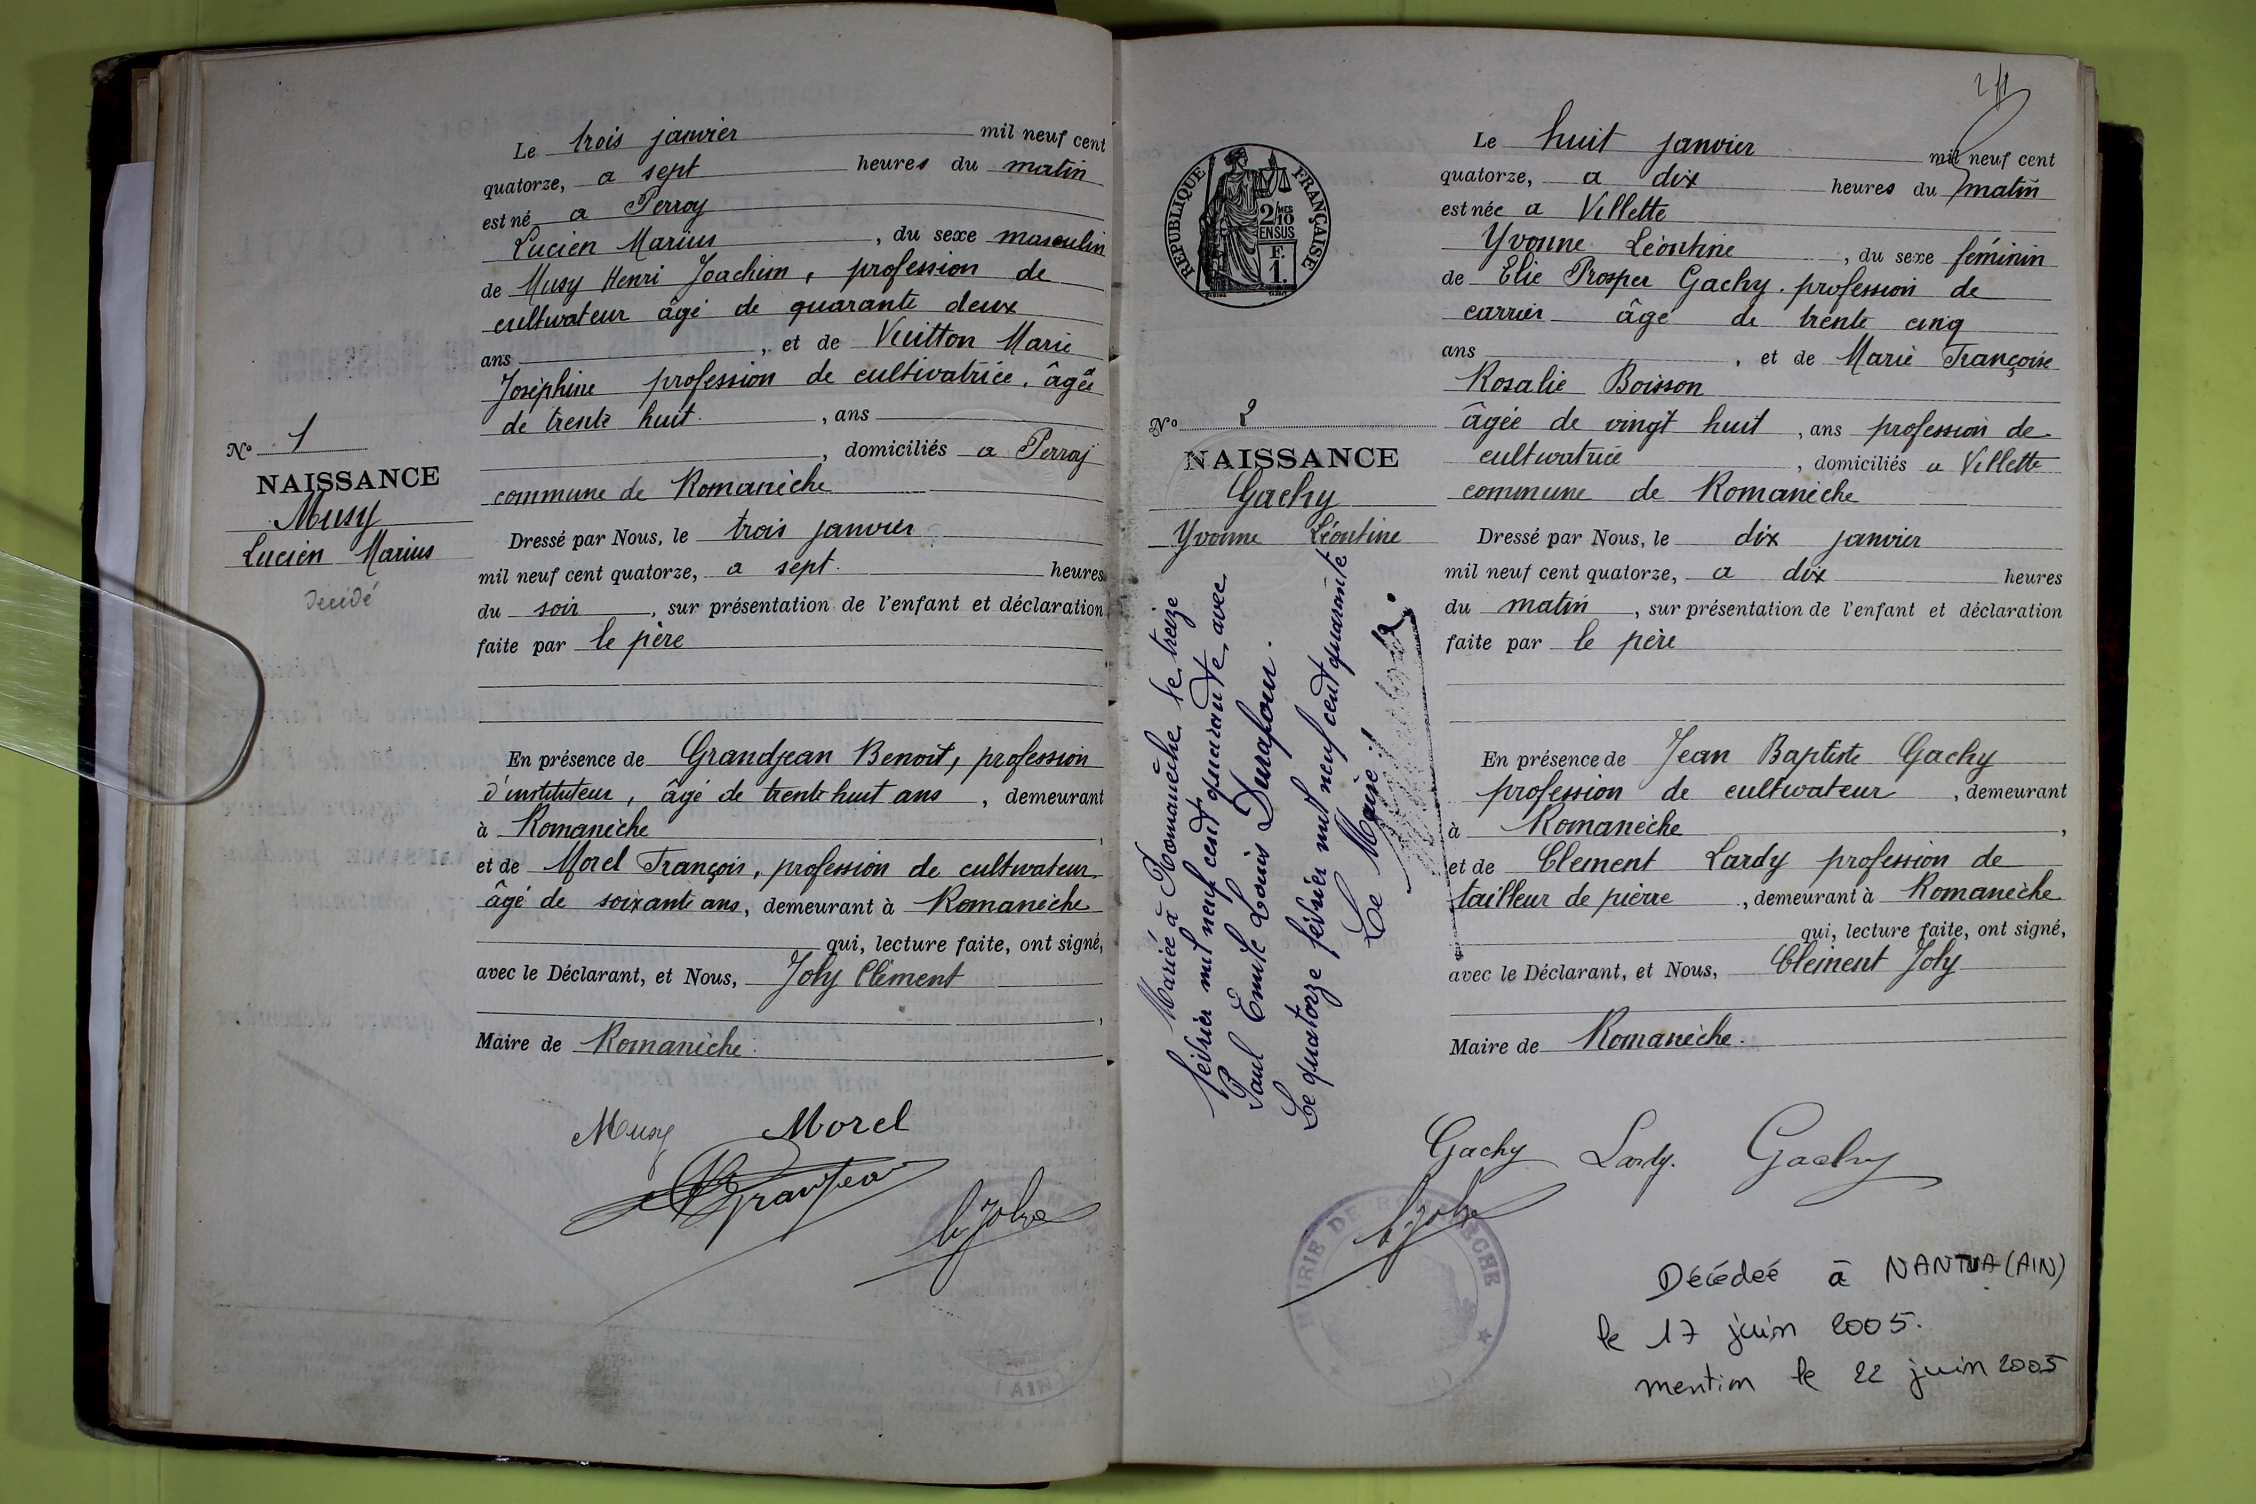 Le trois janvier mil neuf cent
quatorze, a sept heures du matin
est né a Perroy
Lucien Marius, du sexe masculin
de Musy Henri Joachim, profession de
cultivateur âgé de quarante deux
ans, et de Vuitton Marie
Joséphine profession de cultivatrice, âgée
de trente huit, ans
, domiciliés a Perroy
commune de Romanèche
Dressé par Nous, le trois janvier
mil neuf cent quatorze, a sept heures
du soir, sur présentation de l'enfant et déclaration
faite par le père
En présence de Grandjean Benoit, profession
d'instituteur, âgé de trente huit ans, demeurant
à Romanèche,
et de Morel François, profession de cultivateur
âgé de soixante ans, demeurant à Romanèche
qui, lecture faite, ont signé,
avec le Déclarant, et Nous, Joly Clément
,
Maire de Romanèche.
Musy Morel
Grandjean
C. Joly
No 1
NAISSANCE
Musy
Lucien Marius
Décédé
(AIN)
211
RÉPUBLIQUE FRANÇAISE
2/10 MES
EN SUS
F.
1.
No 2
NAISSANCE
Gachy
Yvonne Léontine
Mariée à Romanèche le treize
février mil neuf cent quarante, avec
Paul Emile Louis Durafour.
Le quatorze février mil neuf cent quarante
Le Maire:
Le huit janvier mil neuf cent
quatorze, a dix heures du matin
est née a Villette
Yvonne Léontine, du sexe féminin
de Elie Prosper Gachy. profession de
carrier âgé de trente cinq
ans, et de Marie Françoise
Rosalie Boisson
âgée de vingt huit, ans profession de
cultivatrice, domiciliés a Villette
commune de Romanèche
Dressé par Nous, le dix janvier
mil neuf cent quatorze, a dix heures
du matin, sur présentation de l'enfant et déclaration
faite par le père
En présence de Jean Baptiste Gachy
profession de cultivateur, demeurant
à Romanèche,
et de Clement Lardy profession de
tailleur de pierre, demeurant à Romanèche
qui, lecture faite, ont signé,
avec le Déclarant, et Nous, Clément Joly
Maire de Romanèche.
Gachy Lardy. Gachy
C. Joly
MAIRIE DE ROMANÈCHE
Décédée à NANTUA (AIN)
le 17 juin 2005.
mention le 22 juin 2005